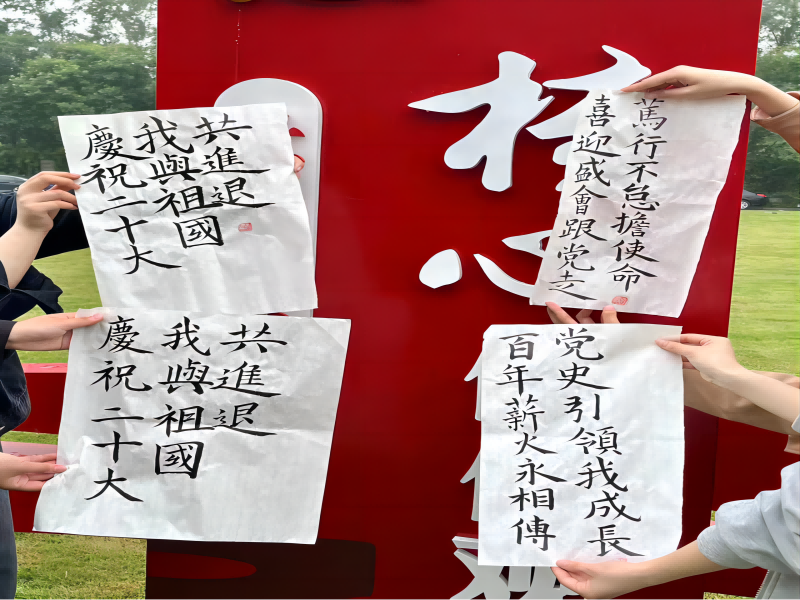 慶祝二十大
我與祖國
共進退
篤行不怠擔使命
喜迎盛會跟党走
慶祝二十大
我與祖國
共進退
党史引領我成長
百年薪火永相傳